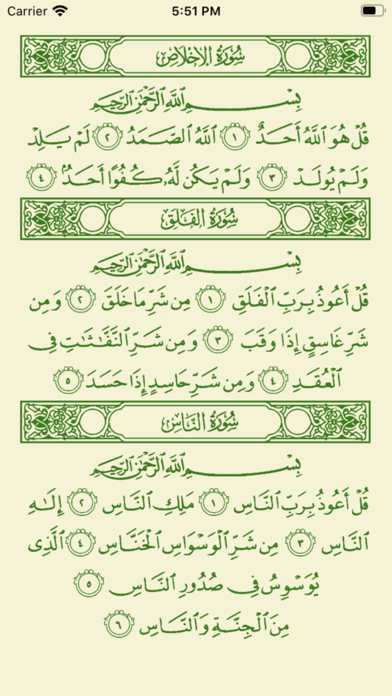 Carrier 5:51 PM
سُورَةُ الإِخْلَاصِ
بِسْمِ ٱللَّهِ ٱلرَّحْمَٰنِ ٱلرَّحِيمِ
قُلْ هُوَ ٱللَّهُ أَحَدٌ ١ ٱللَّهُ ٱلصَّمَدُ ٢ لَمْ يَلِدْ
وَلَمْ يُولَدْ ٣ وَلَمْ يَكُن لَّهُۥ كُفُوًا أَحَدٌۢ ٤
سُورَةُ الفَلَقِ
بِسْمِ ٱللَّهِ ٱلرَّحْمَٰنِ ٱلرَّحِيمِ
قُلْ أَعُوذُ بِرَبِّ ٱلْفَلَقِ ١ مِن شَرِّ مَا خَلَقَ ٢ وَمِن
شَرِّ غَاسِقٍ إِذَا وَقَبَ ٣ وَمِن شَرِّ ٱلنَّفَّٰثَٰتِ فِى
ٱلْعُقَدِ ٤ وَمِن شَرِّ حَاسِدٍ إِذَا حَسَدَ ٥
سُورَةُ النَّاسِ
بِسْمِ ٱللَّهِ ٱلرَّحْمَٰنِ ٱلرَّحِيمِ
قُلْ أَعُوذُ بِرَبِّ ٱلنَّاسِ ١ مَلِكِ ٱلنَّاسِ ٢ إِلَٰهِ
ٱلنَّاسِ ٣ مِن شَرِّ ٱلْوَسْوَاسِ ٱلْخَنَّاسِ ٤ ٱلَّذِى
يُوَسْوِسُ فِى صُدُورِ ٱلنَّاسِ ٥
مِنَ ٱلْجِنَّةِ وَٱلنَّاسِ ٦